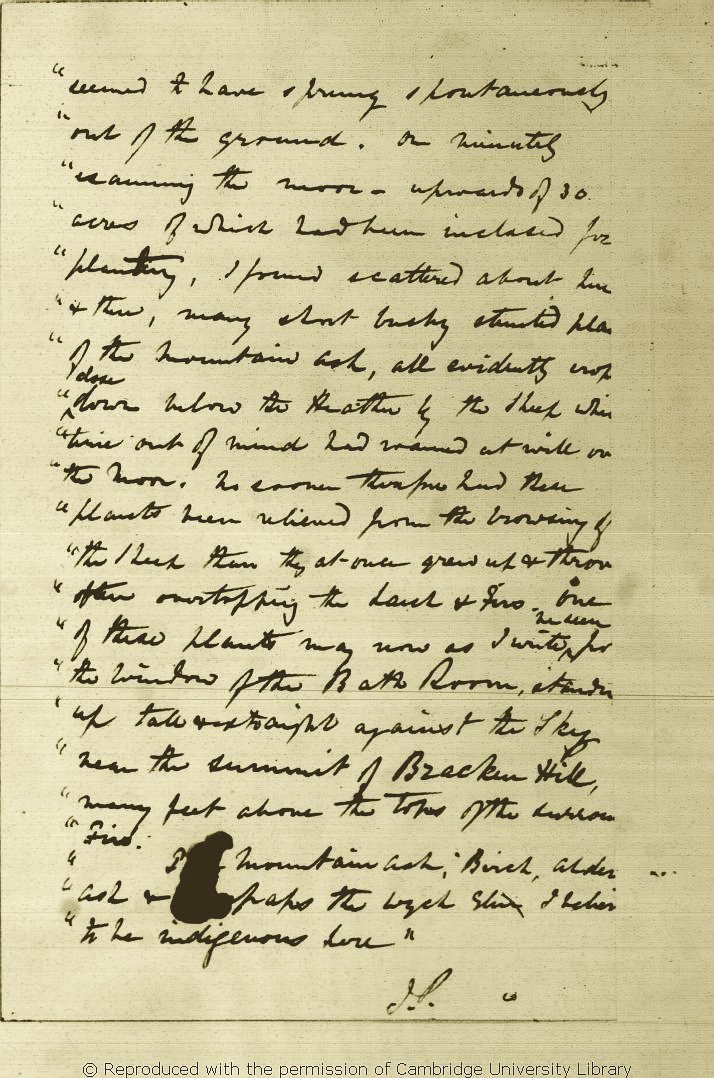 "seemed to have sprung spontaneously
"out of the ground. On minutely
"examining the moor – upwards of 30
"acres of which had been inclosed for
"planting, I found scattered about here
"& there, many short bushy stunted pla
"of the mountain ash, all evidently crop
close
"down below the Heather by the sheep whi
"time out of mind had roamed at will ov
"the Moor. No sooner therefore had these
"plants been relieved from the browsing of
"the sheep than they at once grew up & throve
"often overtopping the Larch & Firs. One
be seen
"of these plants may now as I write, fro
"the window of the Bath Room, standin
"up tall & straight against the Sky
"near the summit of Bracken Hill,
"many feet above the tops of the surroun
"Firs.
" mountain ash, Birch, alder
"ash & perhaps the wych Elm I believ
"to be indigenous here"
J.S.
© Reproduced with the permission of Cambridge University Library